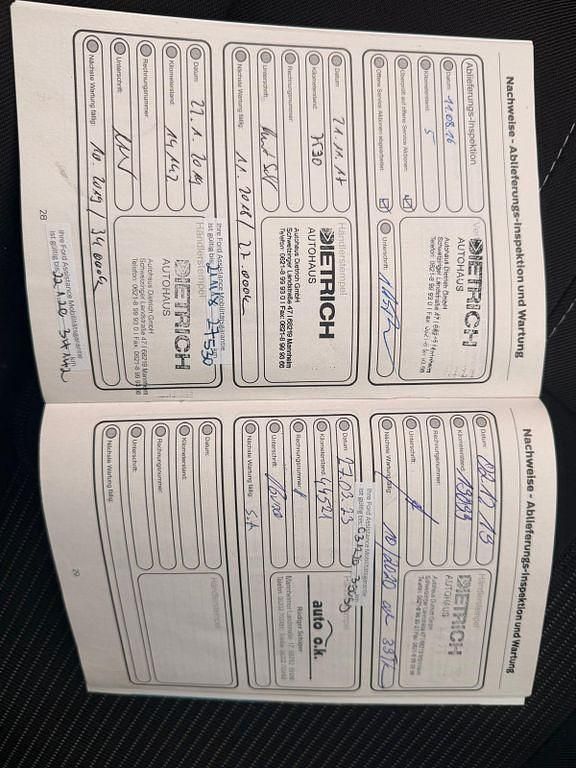 Nachweise - Ablieferungs-Inspektion und Wartung
Ablieferungs-Inspektion
Datum: 11.08.16
Kilometerstand: 5
Überprüft auf offene Service Aktionen:
Offene Service Aktionen abgearbeitet:
DIETRICH
AUTOHAUS
Autohaus Dietrich GmbH
Unterschrift:
Datum: 21.11.17
Kilometerstand: 7530
Rechnungsnummer:
Unterschrift:
Nächste Wartung fällig: 11.2018 / 27.000k
Händlerstempel
DIETRICH
AUTOHAUS
Autohaus Dietrich GmbH
Schwetzinger Landstraße 47 I 68219 Mannheim
Telefon: 0621-8 99 93 0 I Fax: 0621-8 99 93 66
Ihre Ford Assistance Mobilitätsgarantie
ist gültig bis:
Datum: 27.1.2019
Kilometerstand: 14142
Rechnungsnummer:
Unterschrift:
Nächste Wartung fällig: 10.2019 / 34000k
Händlerstempel
DIETRICH
AUTOHAUS
Autohaus Dietrich GmbH
Schwetzinger Landstraße 47 I 68219 Mannheim
Telefon: 0621-8 99 93 0 I Fax: 0621-8 99 93 66
Ihre Ford Assistance Mobilitätsgarantie
ist gültig bis:
28
Nachweise - Ablieferungs-Inspektion und Wartung
Datum:
Kilometerstand:
Rechnungsnummer:
Unterschrift:
Nächste Wartung fällig: 10/2020
Händlerstempel
DIETRICH
AUTOHAUS
Autohaus Dietrich GmbH
Ihre Ford Assistance Mobilitätsgarantie
ist gültig bis:
Datum: 17.03.23
Kilometerstand: 44521
Rechnungsnummer:
Unterschrift:
Nächste Wartung fällig: S.A
auto o.k.
Rüdiger Schäper
Datum:
Kilometerstand:
Rechnungsnummer:
Unterschrift:
Nächste Wartung fällig:
Händlerstempel
29